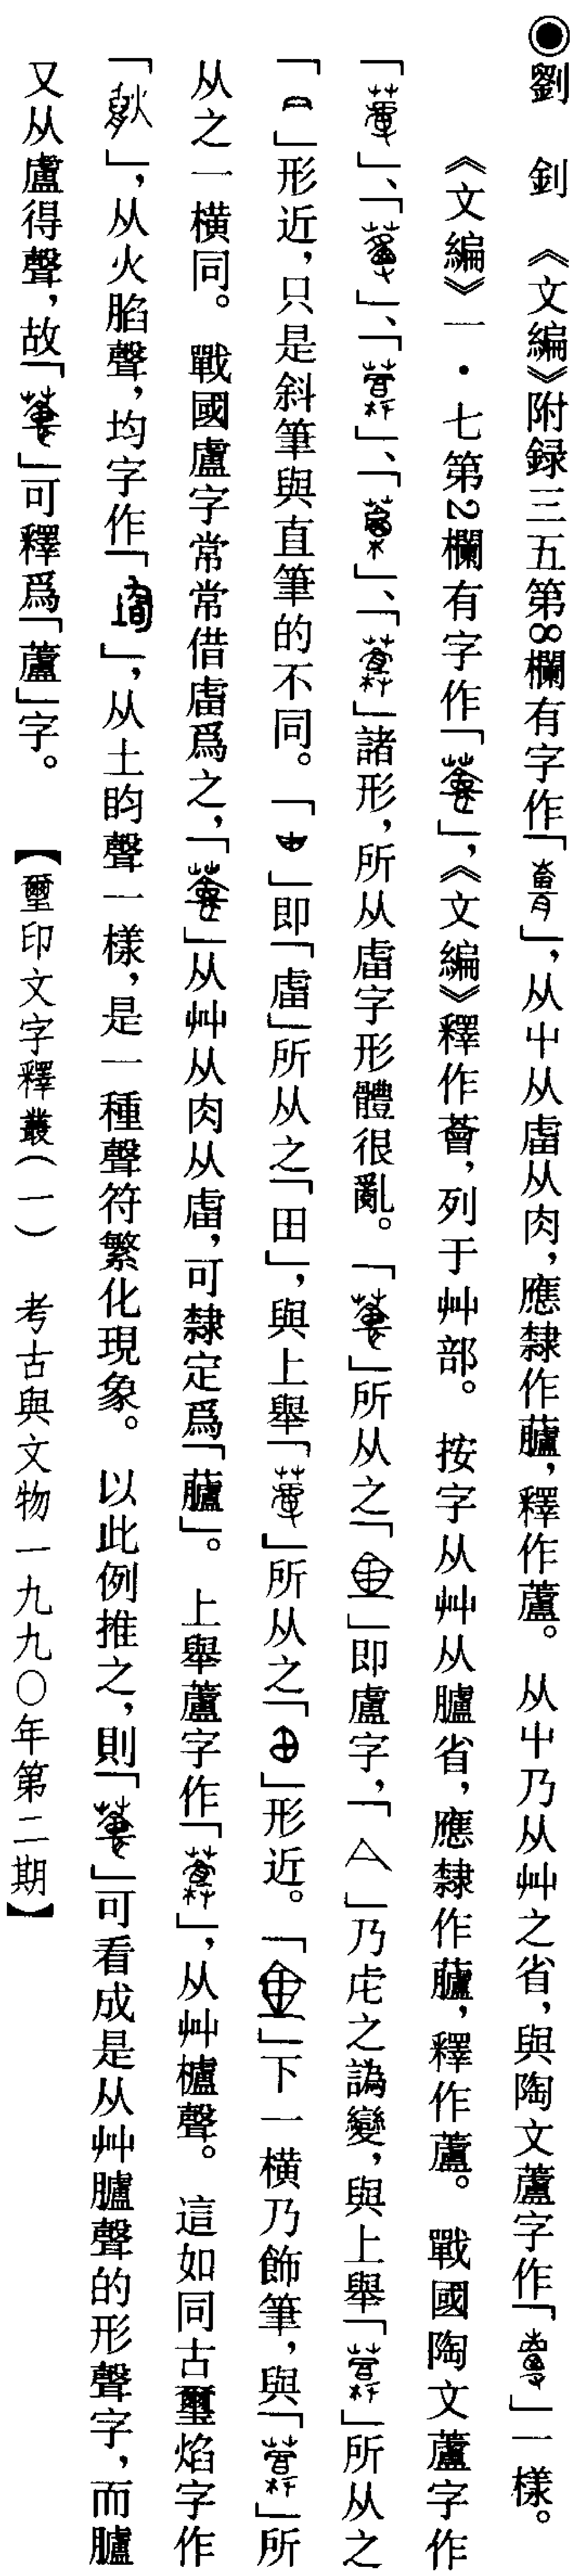 ◉劉 釗 《文編》附録三五第8欄有字作「」,从屮从𧆨从肉,應隸作蘆,釋作蘆。 从屮乃从艸之省,與陶文蘆字作「」一樣。
《文編》一·七第2欄有字作「」,《文編》釋作薈,列于艸部。 按字从艸从臚省,應隸作,釋作蘆。 戰國陶文蘆字作
「」、「」、「」、「」、「」諸形,所从𧆨字形體很亂。「」所从之「」即盧字,「」乃虍之譌變,與上舉「」所从之
「」形近,只是斜筆與直筆的不同。「」即「𧆨」所从之「田」,與上舉「」所从之「」形近。「」下一横乃飾筆,與「」所
从之一横同。 戰國盧字常常借𧆨爲之,「」从艸从肉从𧆨,可隸定爲「」。 上舉蘆字作「」,从艸櫨聲。 這如同古璽焰字作
「」,从火臽聲,均字作「」,从土旬聲一樣,是一種聲符繁化現象。 以此例推之,則「」可看成是从艸臚聲的形聲字,而臚
又从盧得聲,故「」可釋爲「蘆」字。 【璽印文字釋叢(一) 考古與文物一九九〇年第二期】